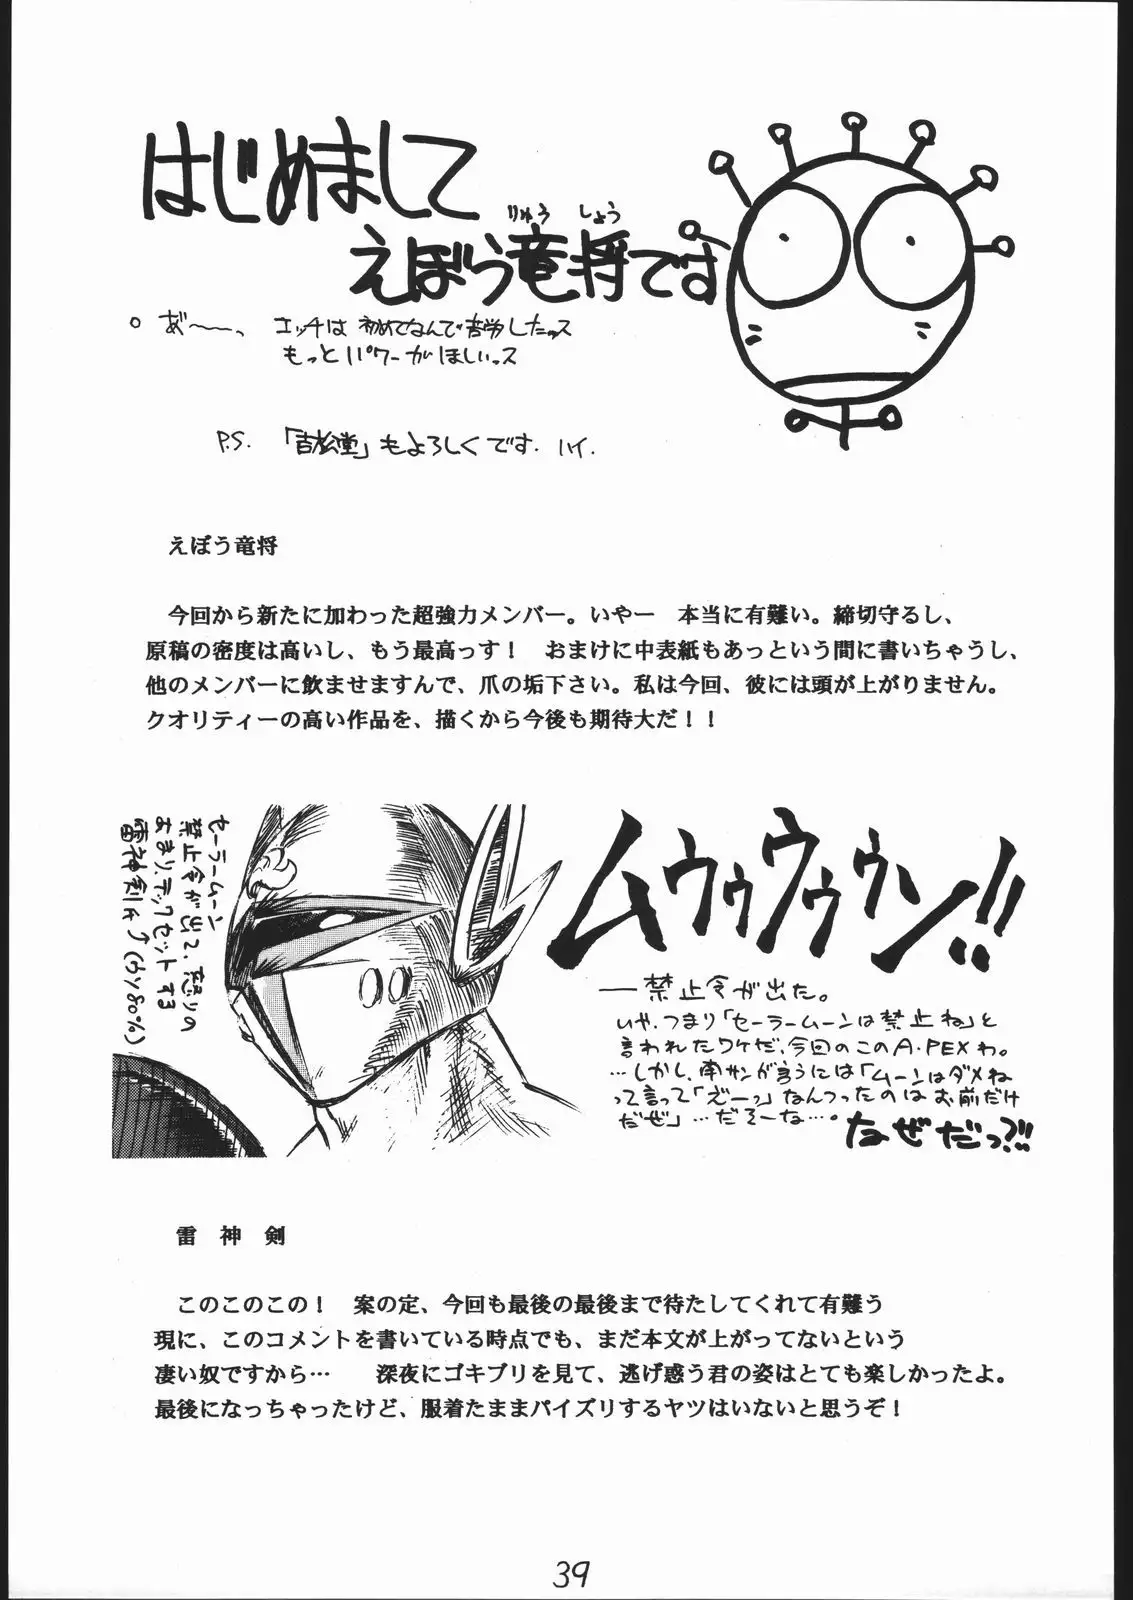 はじめまして
りゅう しょう
えぼう竜将です
あ゛〜〜っ エッチは初めてなんで苦労したっス
もっとパワーがほしいっス
P.S. 「吉松堂」もよろしくです. ハイ.
えぼう竜将
今回から新たに加わった超強力メンバー。いやー 本当に有難い。締切守るし、
原稿の密度は高いし、もう最高っす! おまけに中表紙もあっという間に書いちゃうし、
他のメンバーに飲ませますんで、爪の垢下さい。私は今回、彼には頭が上がりません。
クオリティーの高い作品を、描くから今後も期待大だ!!
セーラームーン
禁止令が出て、怒りの
あまり、テックセットする
雷神剣氏↑(カツ80%)
ムウゥウゥウン!!
―禁止令が出た。
いや、つまり「セーラームーンは禁止ね」と
言われたワケだ、今回のこのA・PEXわ。
…しかし、南サンが言うには「ムーンはダメね
って言って「ズーッ」なんつったのはお前だけ
だぜ」…だそーな…。なぜだっ?!!
雷神剣
このこのこの! 案の定、今回も最後の最後まで待たしてくれて有難う
現に、このコメントを書いている時点でも、まだ本文が上がってないという
凄い奴ですから… 深夜にゴキブリを見て、逃げ惑う君の姿はとても楽しかったよ。
最後になっちゃったけど、服着たままパイズリするヤツはいないと思うぞ!
39